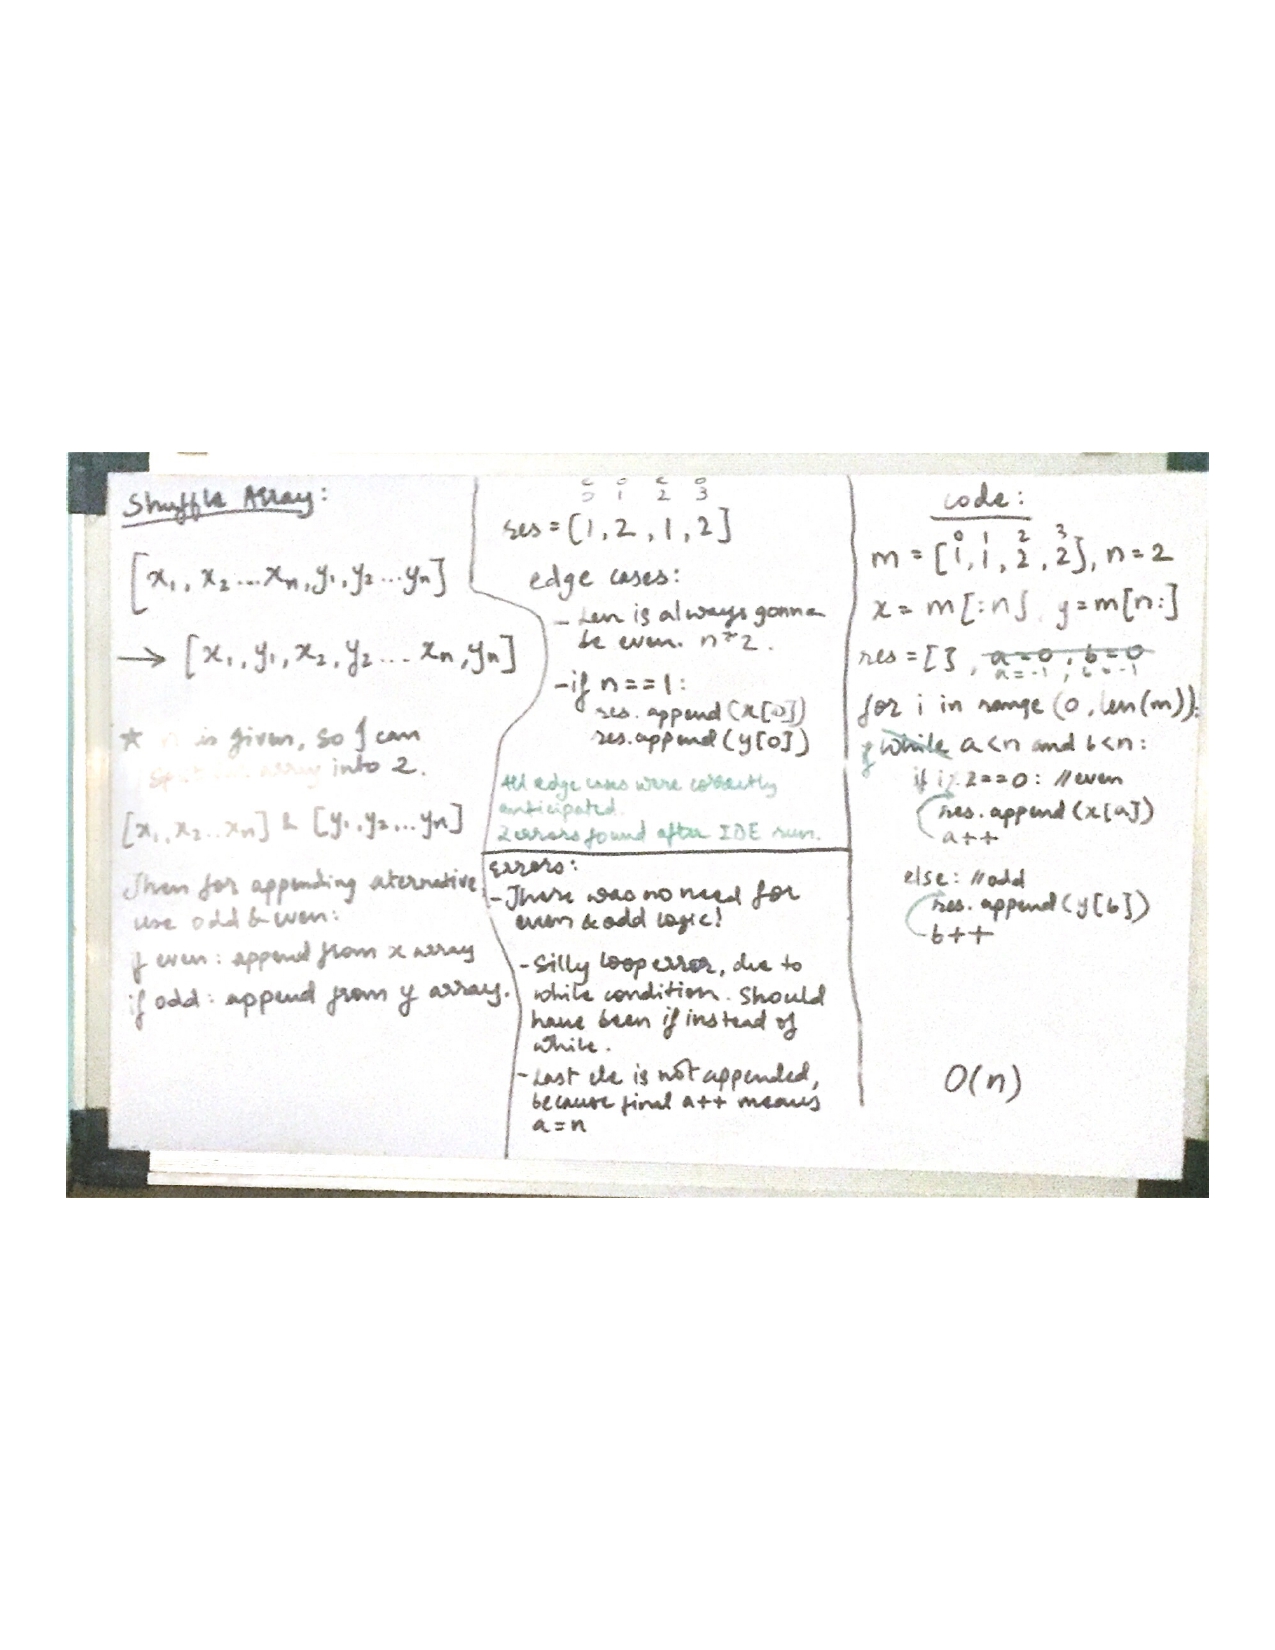 Shuffle Array:
[x1, x2 ... xn, y1, y2 ... yn]
→ [x1, y1, x2, y2 ... xn, yn]
★ n is given, so I can
array into 2.
[x1, x2 .. xn] & [y1, y2, ... yn]
Then for appending alternative
use odd & even:
if even: append from x array
if odd: append from y array.
e o e o
0 1 2 3
res = [1, 2, 1, 2]
edge cases:
- Len is always gonna
be even. n*2.
- if n==1:
res.append(x[0])
res.append(y[0])
All edge cases were correctly
anticipated.
2 errors found after IDE run.
Errors:
- There was no need for
even & odd logic!
- Silly loop error, due to
while condition. Should
have been if instead of
while.
- Last ele is not appended,
because final a++ means
a=n
code:
0 1 2 3
m = [1, 1, 2, 2], n=2
x = m[:n], y=m[n:]
res = [], a=0, b=0
a=-1, b=-1
for i in range (0, len(m)):
if while a<n and b<n:
if i%2==0: //even
res.append(x[a])
a++
else: //odd
res.append(y[b])
b++
O(n)